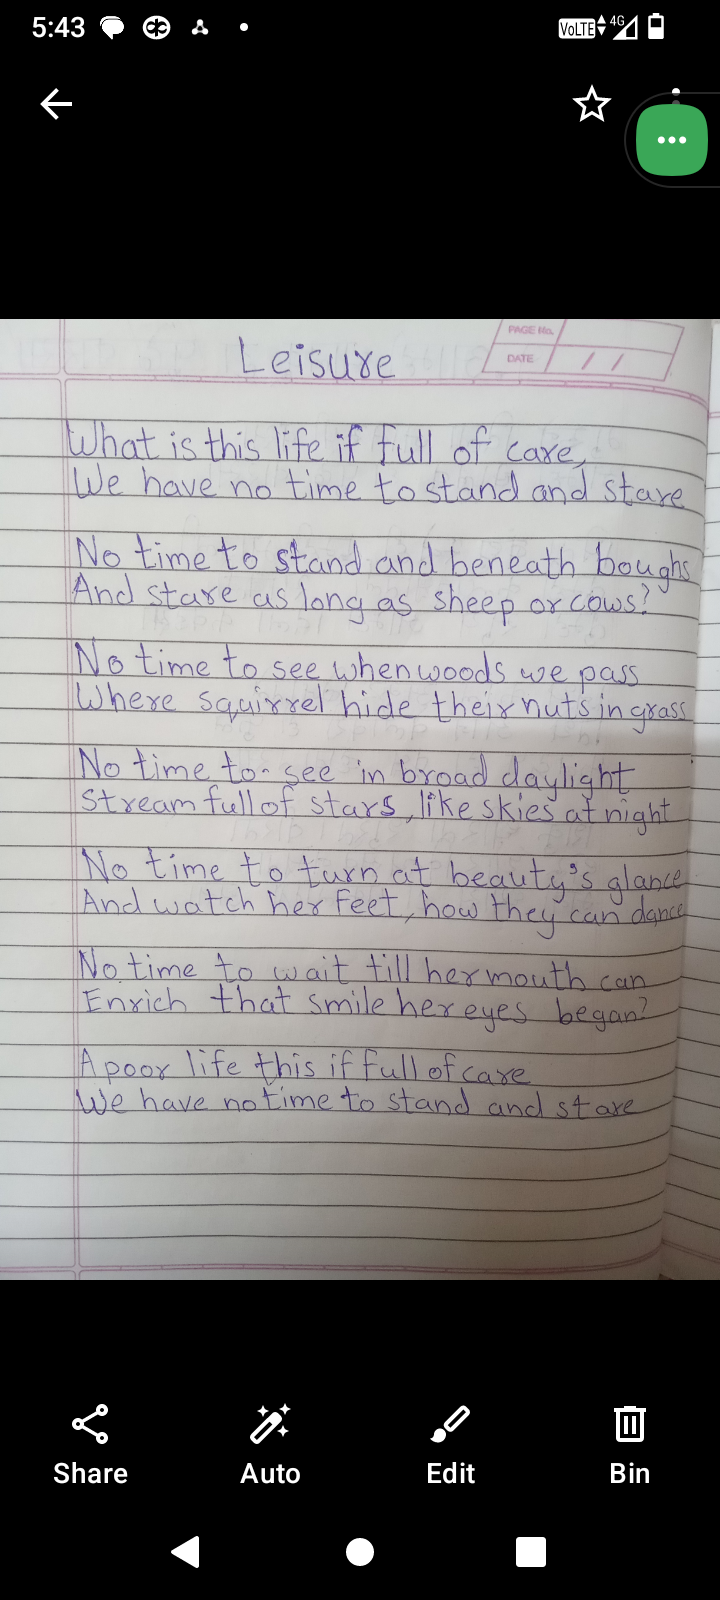 5:43
VoLTE 4G
PAGE No.
DATE / /
Leisure
What is this life if full of care,
We have no time to stand and stare
No time to stand and beneath boughs
And stare as long as sheep or cows?
No time to see when woods we pass
Where squirrel hide their nuts in grass
No time to see in broad daylight
Stream full of stars, like skies at night
No time to turn at beauty's glance
And watch her feet, how they can dance
No time to wait till her mouth can
Enrich that smile her eyes began?
A poor life this if full of care
We have no time to stand and stare
Share
Auto
Edit
Bin